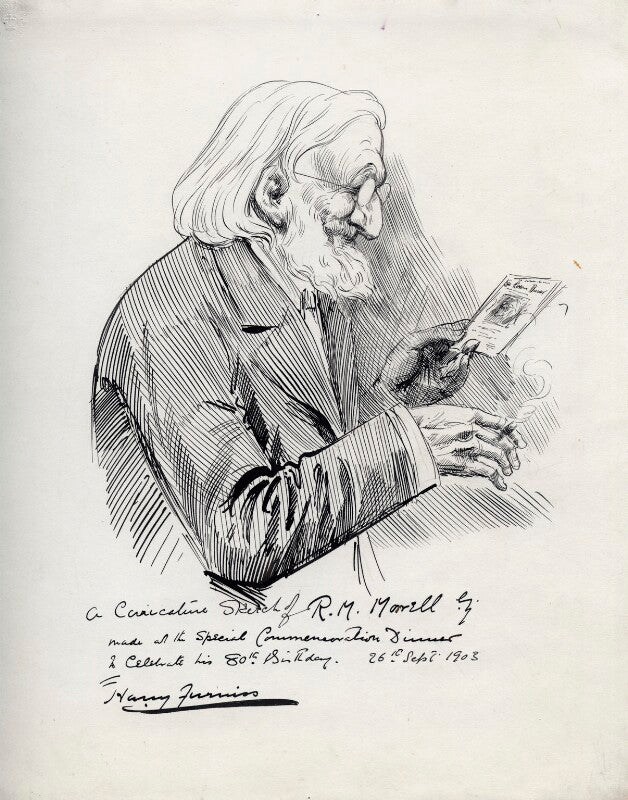 A Caricature Sketch of R. M. Morrell Esq
made at the Special Commemoration Dinner
to Celebrate his 80th Birthday. 26th Sept 1903
Harry Furniss